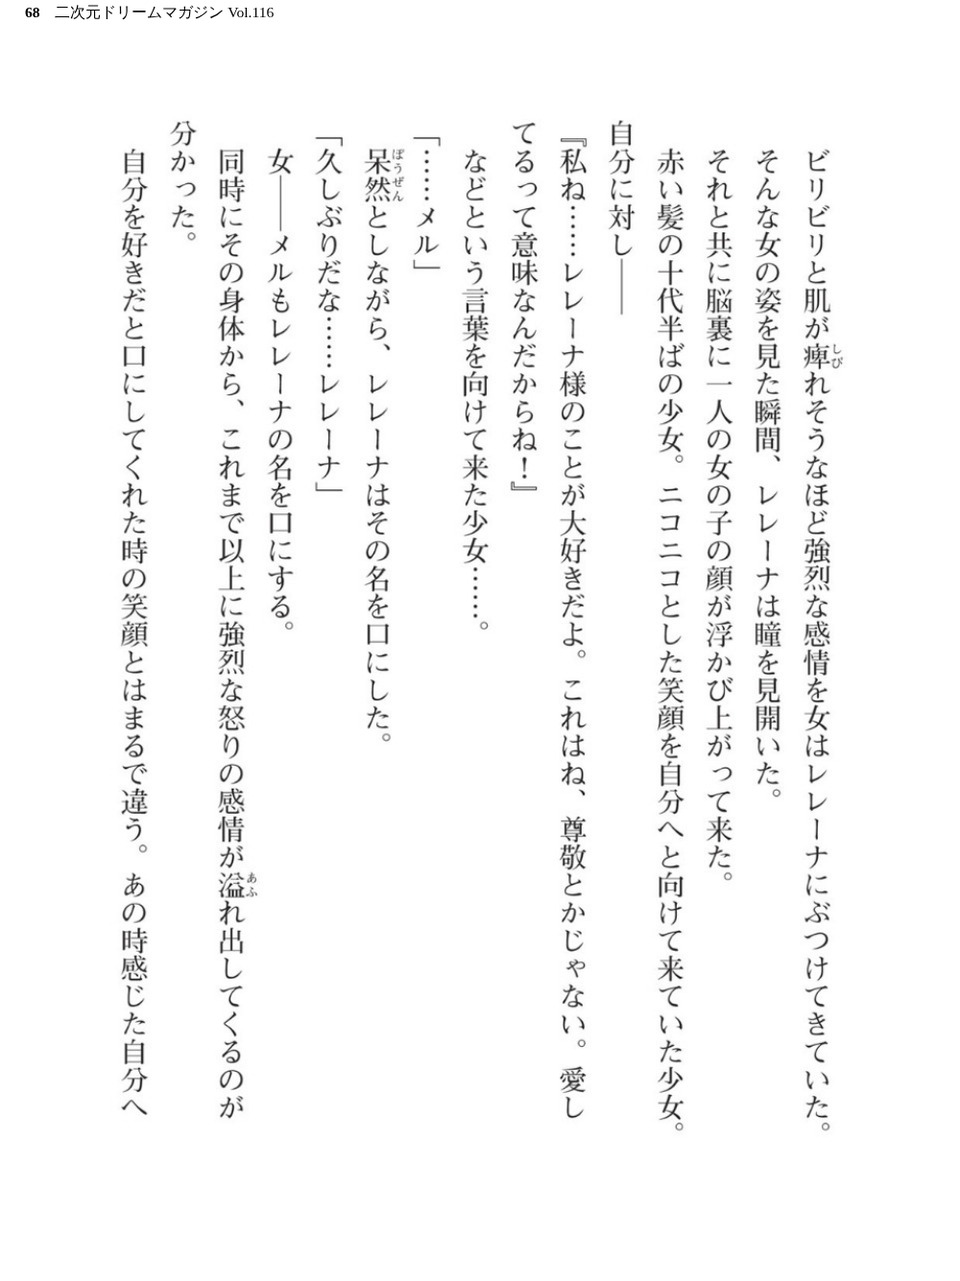 68 二次元ドリームマガジン Vol.116
　ビリビリと肌が痺れそうなほど強烈な感情を女はレレーナにぶつけてきていた。
　そんな女の姿を見た瞬間、レレーナは瞳を見開いた。
　それと共に脳裏に一人の女の子の顔が浮かび上がって来た。
　赤い髪の十代半ばの少女。ニコニコとした笑顔を自分へと向けて来ていた少女。
自分に対し――
『私ね……レレーナ様のことが大好きだよ。これはね、尊敬とかじゃない。愛し
てるって意味なんだからね！』
　などという言葉を向けて来た少女……。
「……メル」
　呆然としながら、レレーナはその名を口にした。
「久しぶりだな……レレーナ」
　女――メルもレレーナの名を口にする。
　同時にその身体から、これまで以上に強烈な怒りの感情が溢れ出してくるのが
分かった。
　自分を好きだと口にしてくれた時の笑顔とはまるで違う。あの時感じた自分へ